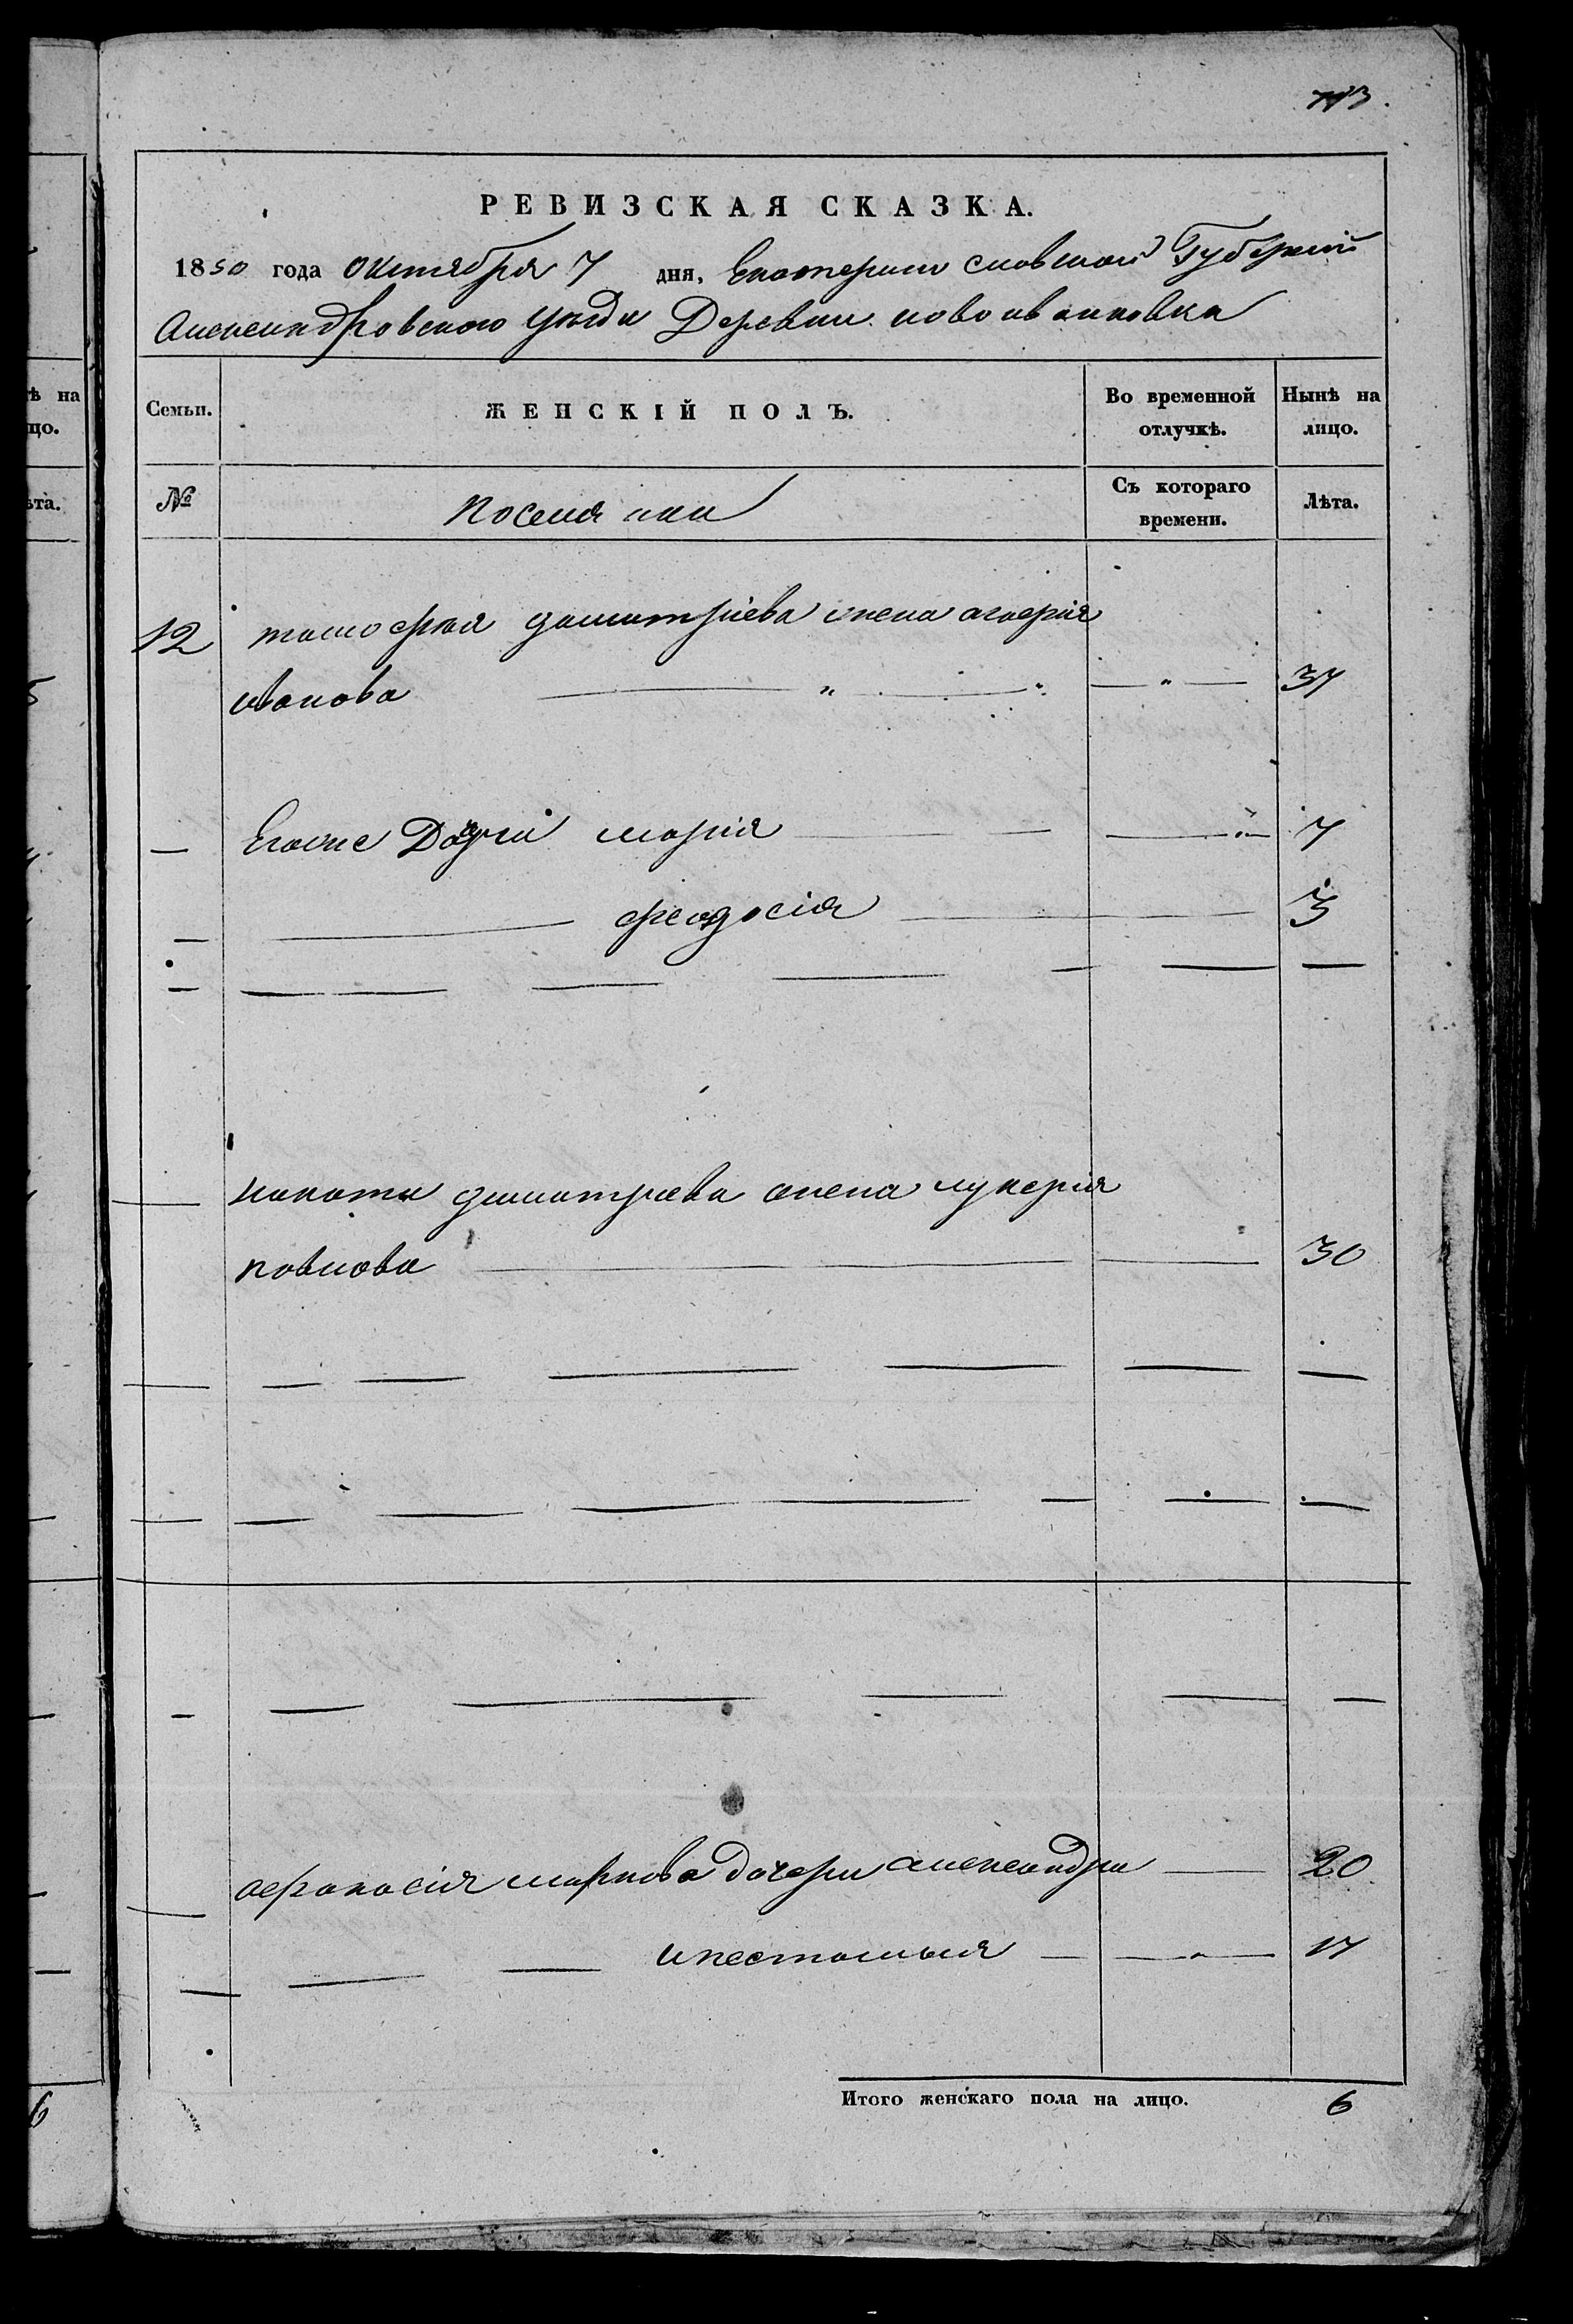 РЕВИЗСКАЯ СКАЗКА.
1850 года октября 7 дня, Екатерино славской Губерний
Александровского уезда Деревни новоивановка
Семьи.
ЖЕНСКІЙ ПОЛЪ.
Во временной отлучкѣ.
Нынѣ на лицо.
№
поселянки
Съ котораго времени.
Лѣта.
12 тимофея димитріева жена агафія
иванова 37
Егоже Дочери марія 7
феодосія 3
игната димитриева жена лукерія
павлова 30
афанасия маркова дочери александра 20
и пестимыя 17
Итого женскаго пола на лицо. 6
ѣ на
цо.
ѣта.
6